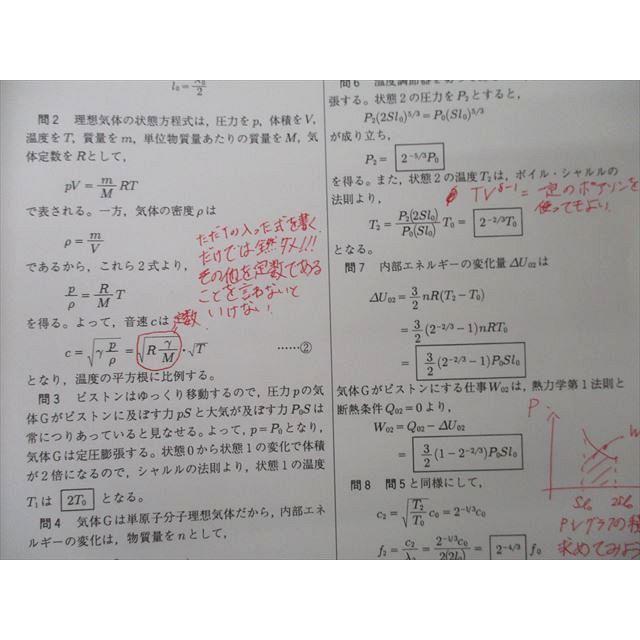 l₀ = λ₀/2
問2 理想気体の状態方程式は，圧力をp，体積をV，
温度をT，質量をm，単位物質量あたりの質量をM，気
体定数をRとして，
pV = m/M RT
で表される。一方，気体の密度ρは
ρ = m/V
であるから，これら2式より，
p/ρ = R/M T
を得る。よって，音速cは
c = √(γ p/ρ) = √(R γ/M)・√T ……②
となり，温度の平方根に比例する。
ただTの入った式を書く
だけでは全然ダメ!!!
その他を定数である
ことを言わないと
いけない!
定数
問3 ピストンはゆっくり移動するので，圧力pの気
体Gがピストンに及ぼす力pSと大気が及ぼす力P₀Sは
常につりあっていると見なせる。よって，p=P₀となり，
気体Gは定圧膨張する。状態0から状態1の変化で体積
が2倍になるので，シャルルの法則より，状態1の温度
T₁は 2T₀ となる。
問4 気体Gは単原子分子理想気体だから，内部エネ
ルギーの変化は，物質量をnとして，
問6
張する。状態2の圧力をP₂とすると，
P₂(2Sl₀)^5/3 = P₀(Sl₀)^5/3
が成り立ち，
P₂ = 2^-5/3 P₀
を得る。また，状態2の温度T₂は，ボイル・シャルルの
法則より，
TV^γ-1 = 一定のポアソンを
使ってもよい
T₂ = P₂(2Sl₀)/P₀(Sl₀) T₀ = 2^-2/3 T₀
となる。
問7 内部エネルギーの変化量ΔU₀₂は
ΔU₀₂ = 3/2 nR(T₂−T₀)
= 3/2 (2^-2/3−1)nRT₀
= 3/2 (2^-2/3−1)P₀Sl₀
気体Gがピストンにする仕事W₀₂は，熱力学第1法則と
断熱条件Q₀₂=0より，
W₀₂ = Q₀₂−ΔU₀₂
= 3/2 (1−2^-2/3)P₀Sl₀
P
W
Sl₀ 2Sl₀
PVグラフの
求めてみよう
問8 問5と同様にして，
c₂ = √(T₂/T₀) c₀ = 2^-1/3 c₀
f₂ = c₂/λ₂ = 2^-1/3 c₀/2(2l₀) = 2^-4/3 f₀